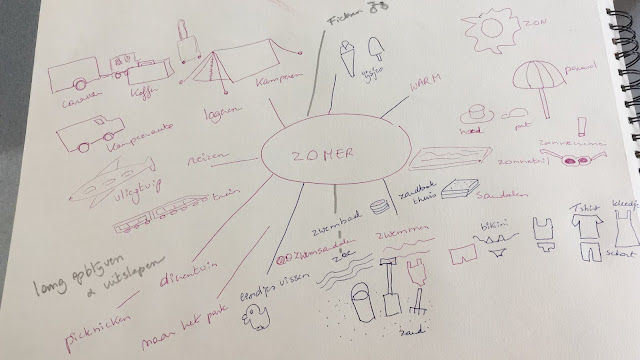 Fietsen
ZON
WARM
parasol
hoed
pet
zonnebril
sandalen
caravan
Koffer
Kamperen
logeren
Kampeerauto
reizen
vliegtuig
trein
ZOMER
zandbak
thuis
zwembad
zwemmen
zwemsandalen
zee
bikini
Tshirt
kleedje
short
zand
eendjes vissen
naar het park
dierentuin
picknicken
lang opblijven
& uitslapen